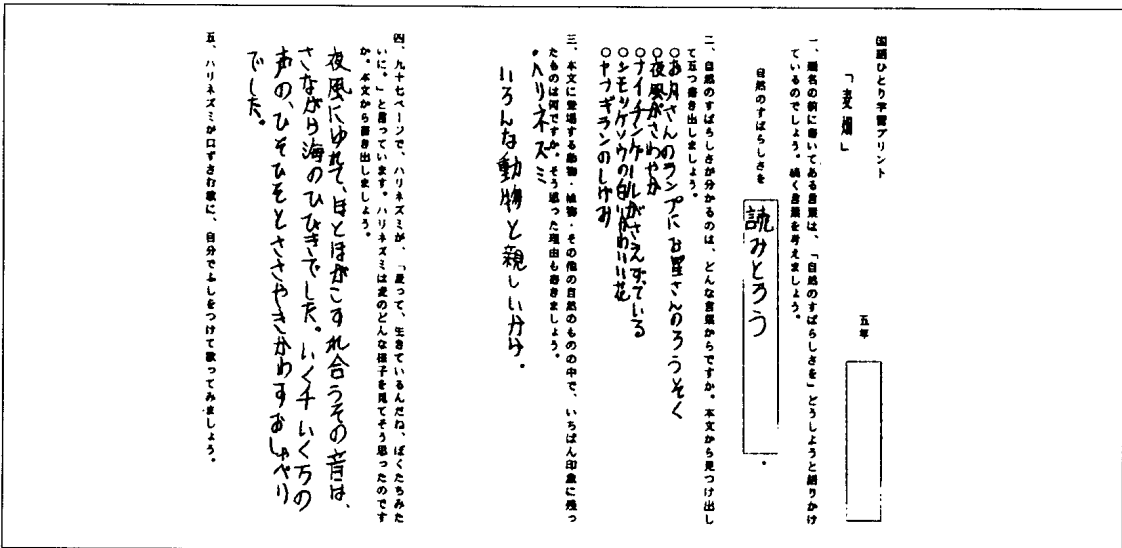 国語ひとり学習プリント
「麦畑」
五年
一、題名の前に書いてある言葉は、「自然のすばらしさを」どうしようと語りかけ
ているのでしょう。続く言葉を考えましょう。
自然のすばらしさを
読みとろう
。
二、自然のすばらしさが分かるのは、どんな言葉からですか。本文から見つけ出し
て五つ書き出しましょう。
○お月さんのランプにお星さんのろうそく
○夜風がさわやか
○ナイチンゲールがさえずている
○シモツケソウの白いかわいい花
○ヤナギランのしげみ
三、本文に登場する動物・植物・その他の自然のものの中で、いちばん印象に残っ
たものは何ですか。そう思った理由も書きましょう。
・ハリネズミ
いろんな動物と親しい分け.
四、九十七ページで、ハリネズミが、「麦って、生きているんだね、ぼくたちみた
いに。」と言っています。ハリネズミは麦のどんな様子を見てそう思ったのです
か。本文から書き出しましょう。
夜風にゆれて、ほとほがこすれ合うその音は、
さながら海のひびきでした。いく千いく万の
声の、ひそひそとささやきかわすおしゃべり
でした。
五、ハリネズミが口ずさむ歌に、自分でふしをつけて歌ってみましょう。